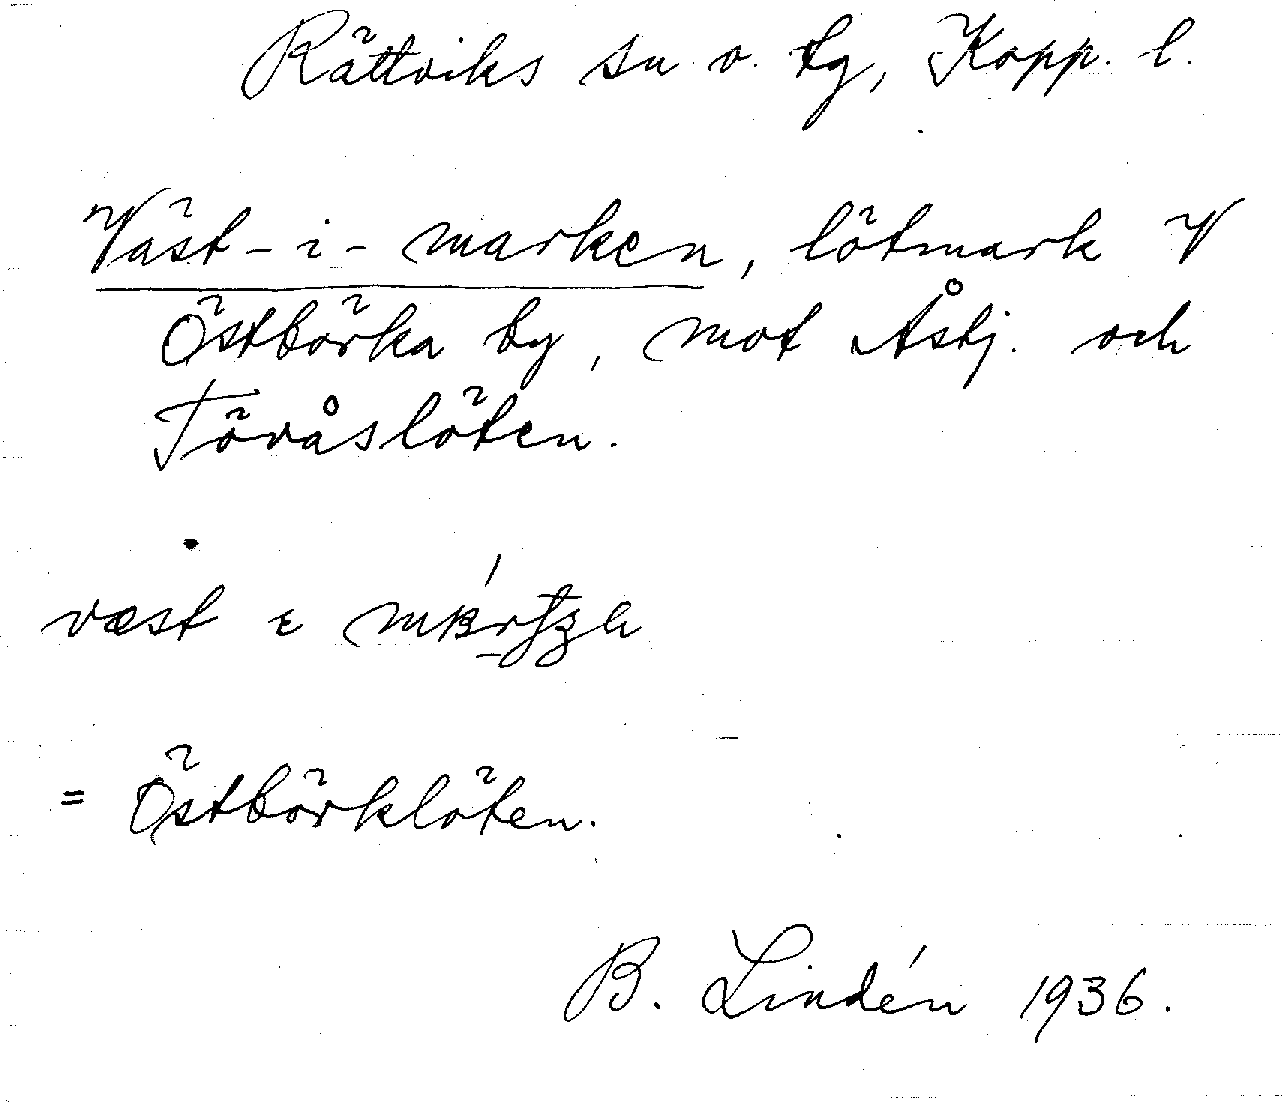 Rättviks sn o. tg, Kopp. l.
Väst-i-marken, lötmark V
Östbörka by, mot Åsbj. och
Tövåslöten.
væst
= Östbörklöten.
B. Lindén 1936.